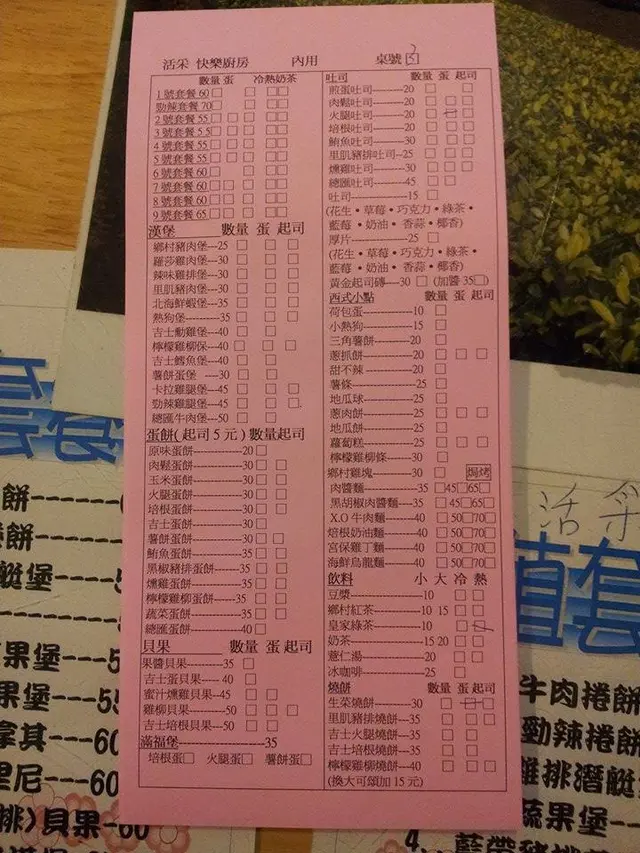 活采 快樂廚房 內用 桌號 5
數量 蛋 冷熱奶茶
1號套餐 60□ □□
勁辣套餐 70□ □□
2號套餐 55□ □ □□
3號套餐 55□ □ □□
4號套餐 55□ □ □□
5號套餐 55□ □ □□
6號套餐 60□ □□
7號套餐 60□ □ □□
8號套餐 60□ □ □□
9號套餐 65□ □ □□
漢堡 數量 蛋 起司
鄉村豬肉堡---25 □ □ □
羅莎雞肉堡---30 □ □ □
辣味雞排堡---30 □ □ □
里肌豬肉堡---30 □ □ □
北海鮮蝦堡---35 □ □ □
熱狗堡---------35 □ □ □
吉士勳雞堡---40 □ □
檸檬雞柳保---40 □ □ □
吉士鱈魚堡---40 □ □
薯餅蛋堡 ----30 □ □
卡拉雞腿堡---45 □ □ □
勁辣雞腿堡---45 □ □ □
總匯牛肉堡---50 □ □
蛋餅(起司5元)數量起司
原味蛋餅-------------20□
肉鬆蛋餅-------------30□ □
玉米蛋餅-------------30□ □
火腿蛋餅-------------30□ □
培根蛋餅-------------30□ □
吉士蛋餅-------------30□
薯餅蛋餅-------------30□ □
鮪魚蛋餅-------------35□ □
黑椒豬排蛋餅-------35□ □
燻雞蛋餅-------------35□ □
檸檬雞柳蛋餅-------35□ □
蔬菜蛋餅-------------35□ □
總匯蛋餅-------------40□
貝果 數量 蛋 起司
果醬貝果--------35 □
吉士蛋貝果---- 40 □
蜜汁燻雞貝果---45 □ □
雞柳貝果---------50 □ □ □
吉士培根貝果---50 □ □
滿福堡--------------------35
培根蛋□ 火腿蛋□ 薯餅蛋□
吐司 數量 蛋 起司
煎蛋吐司--------20 □ □
肉鬆吐司--------20 □ □ □
火腿吐司--------20 □ □ □
培根吐司--------20 □ □ □
鮪魚吐司--------30 □ □ □
里肌豬排吐司---25 □ □ □
燻雞吐司--------30 □ □ □
總匯吐司--------45 □ □
吐司-------------15 □
(花生•草莓•巧克力•綠茶•
藍莓•奶油•香蒜•椰香)
厚片-------------25 □
(花生•草莓•巧克力•綠茶•
藍莓•奶油•香蒜•椰香)
黃金起司磚----30 □ (加醬 35□)
西式小點 數量 蛋 起司
荷包蛋-----------10 □
小熱狗-----------15 □
三角薯餅--------20 □
蔥抓餅-----------20 □ □ □
甜不辣 ----------20 □
薯條-------------25 □
地瓜球-----------25 □
蔥肉餅-----------25 □ □ □
地瓜餅-----------25 □
蘿蔔糕-----------25 □ □ □
檸檬雞柳條-----30 □
鄉村雞塊--------30 □ 焗烤
肉醬麵-----------35 □45□65□
黑胡椒肉醬麵---35 □45□65□
X.O牛肉麵-------40 □ 50□70□
培根奶油麵-----40 □ 50□70□
宮保雞丁麵-----40 □ 50□70□
海鮮烏龍麵-----40 □ 50□70□
飲料 小 大 冷 熱
豆漿-------------10 □ □
鄉村紅茶---------10 15 □ □
皇家綠茶---------10 □ □
奶茶-------------15 20 □ □
薏仁湯-----------20 □ □
冰咖啡-----------25 □
燒餅 數量 蛋 起司
生菜燒餅---------30 □ □ □
里肌豬排燒餅---35 □ □ □
吉士火腿燒餅---35 □ □
吉士培根燒餅---35 □ □
檸檬雞柳燒餅---40 □ □ □
(換大可頌加 15 元)
套
餅------
捲餅
艇堡
果堡---5
果堡---55
拿其---60
里尼---60
排)貝果-60
活采
套
牛肉捲餅
勁辣捲餅
雞排潛艇
蔬果堡--
4. 藍帶豬排